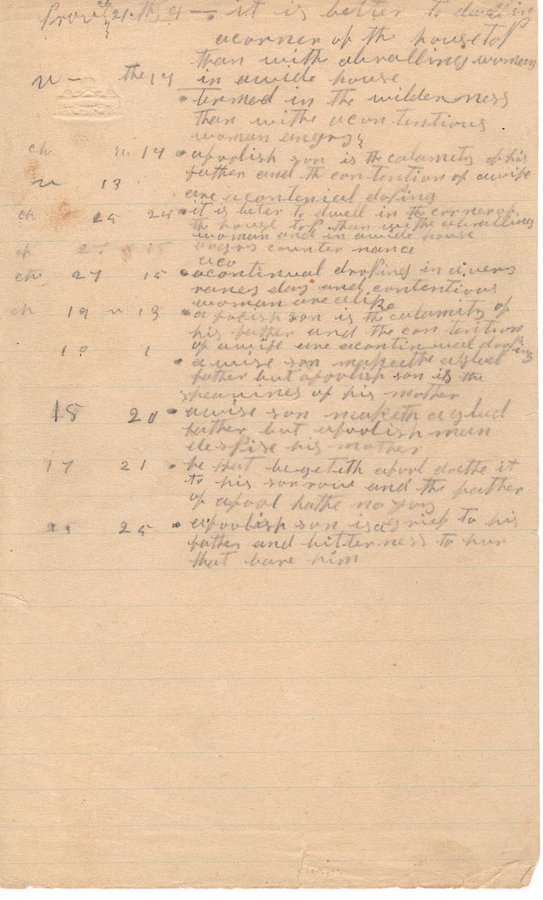 it is better to dwell in
acorner of th housetop
than with abralling woman
n - the 19 in awide house
termed in the wilderness
than withe acontentious
woman angry
ch n 19 afoolish son is the calamity of his
n 13 father and th contention of awife
are acontenial
ch 25 24 it is beter to dwell in the corner of
the house top than with abralling
woman and in awide house
ch 27 15 counter nance
aco
ch 27 15 acontinual droping in avery
raney day and contentious
woman are alike
ch 19 n 13 afoolish son is the calamity of
his father and the contention
of awife are acontinual droping
10 1 awise son maketh aglad
father but afoolish son is the
heavines of his mother
15 20 awise son maketh aglad
father but afoolish man
despise his mother
17 21 he that begeteth afool doethe it
to his sorrow and the father
of afool hathe no joy
25 afoolish son is agrief to his
father and bitterness to hur
that bare him